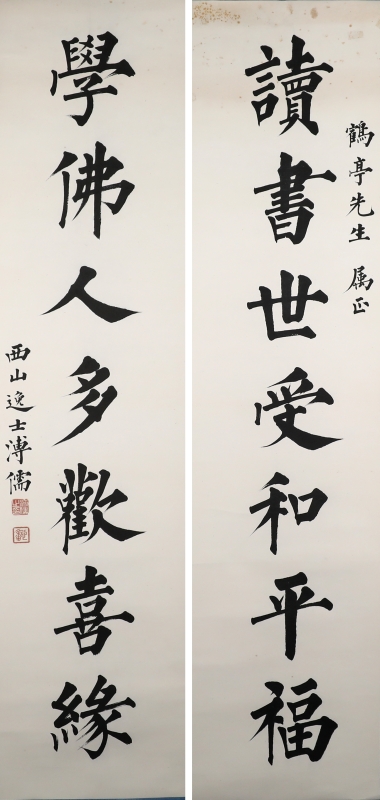 鶴亭先生 属正
讀書世受和平福
學佛人多歡喜緣
西山逸士溥儒